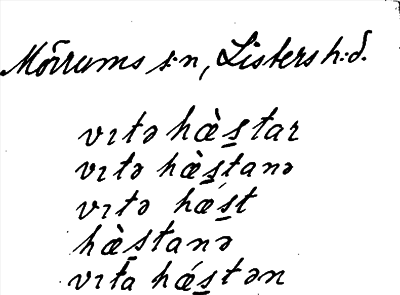 Mörrums s:n, Listers h:d.
vıtə hæ̀s̱tar
vıtə hæ̀s̱tanə
vıtə hǽs̱t
hæ̀s̱tanə
vıta hǽs̱tən